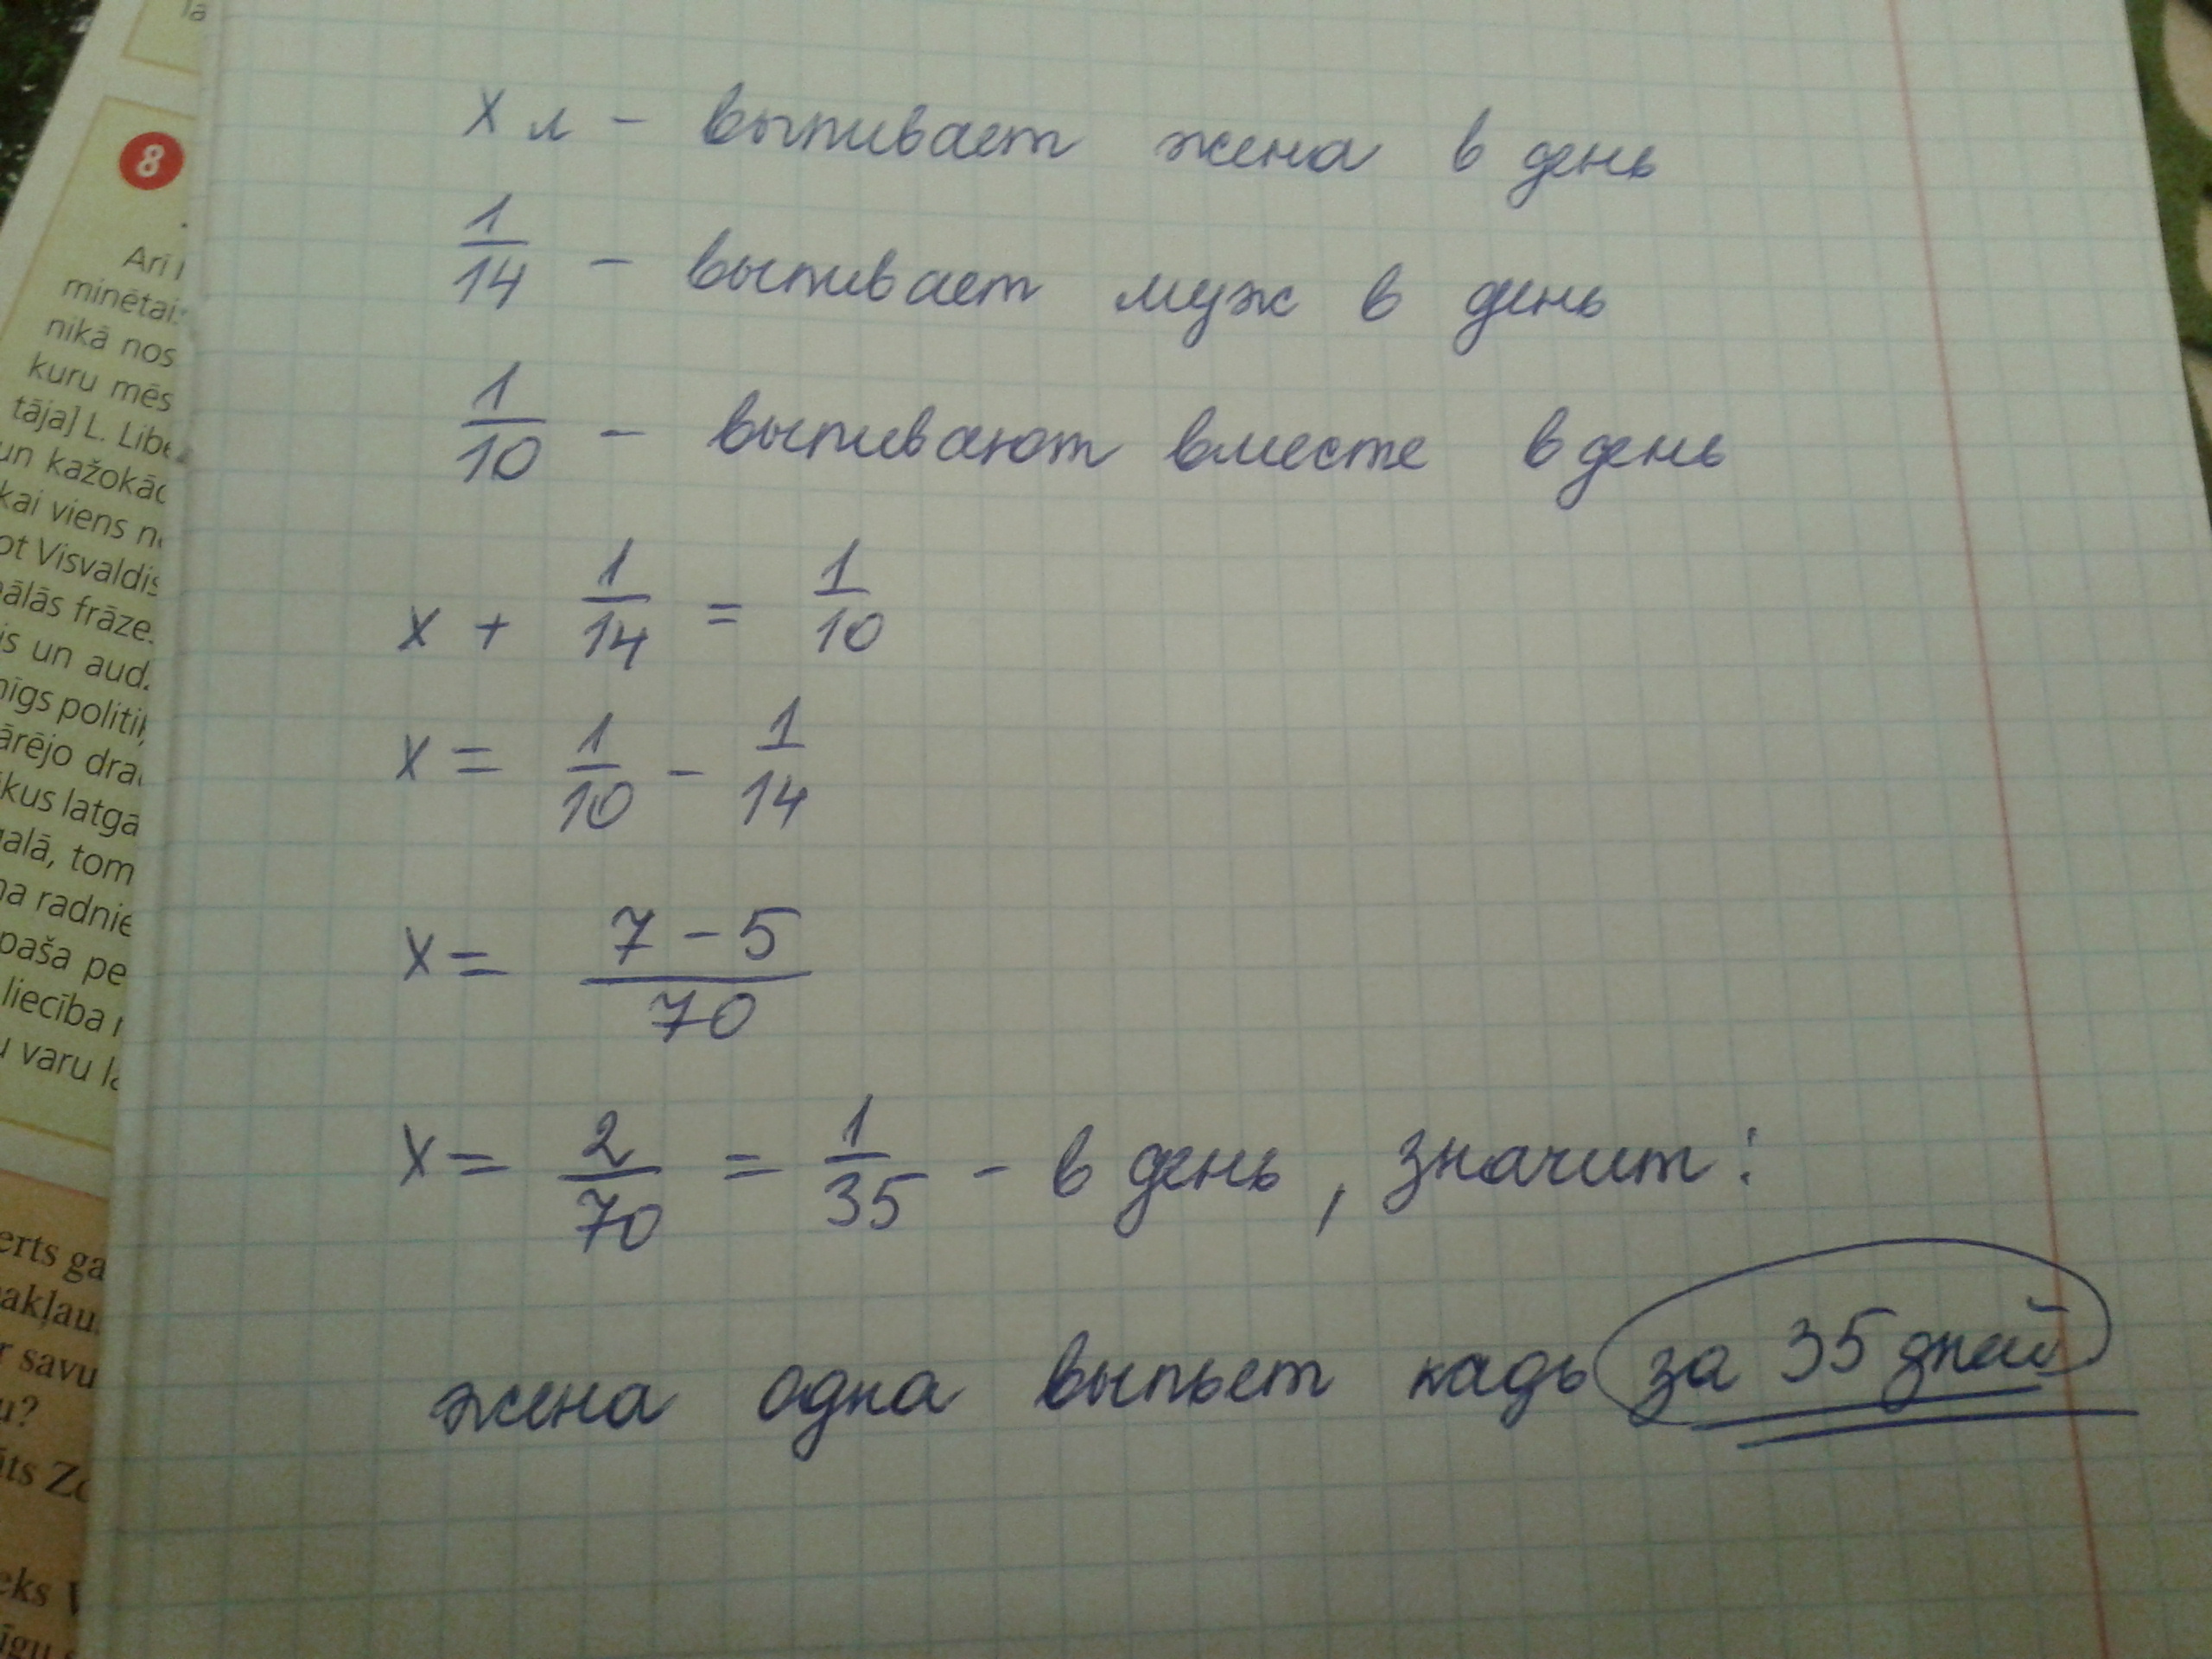 х л – выпивает жена в день
1/14 – выпивает муж в день
1/10 – выпивают вместе в день
x + 1/14 = 1/10
x = 1/10 – 1/14
x = 7 – 5 / 70
x = 2/70 = 1/35 – в день, значит:
жена одна выпьет кадь за 35 дней
8
Arī
minētai
nikā nos
kuru mēs
tāja] L. Libe
un kažokād
kai viens n
ot Visvaldis
ālās frāze.
is un aud
nīgs politiķ
ārējo dra
kus latga
galā, tom
na radnie
paša pe
liecība
u varu la
erts ga
akļau
r savu
u?
āts Zo
eks V
īgu